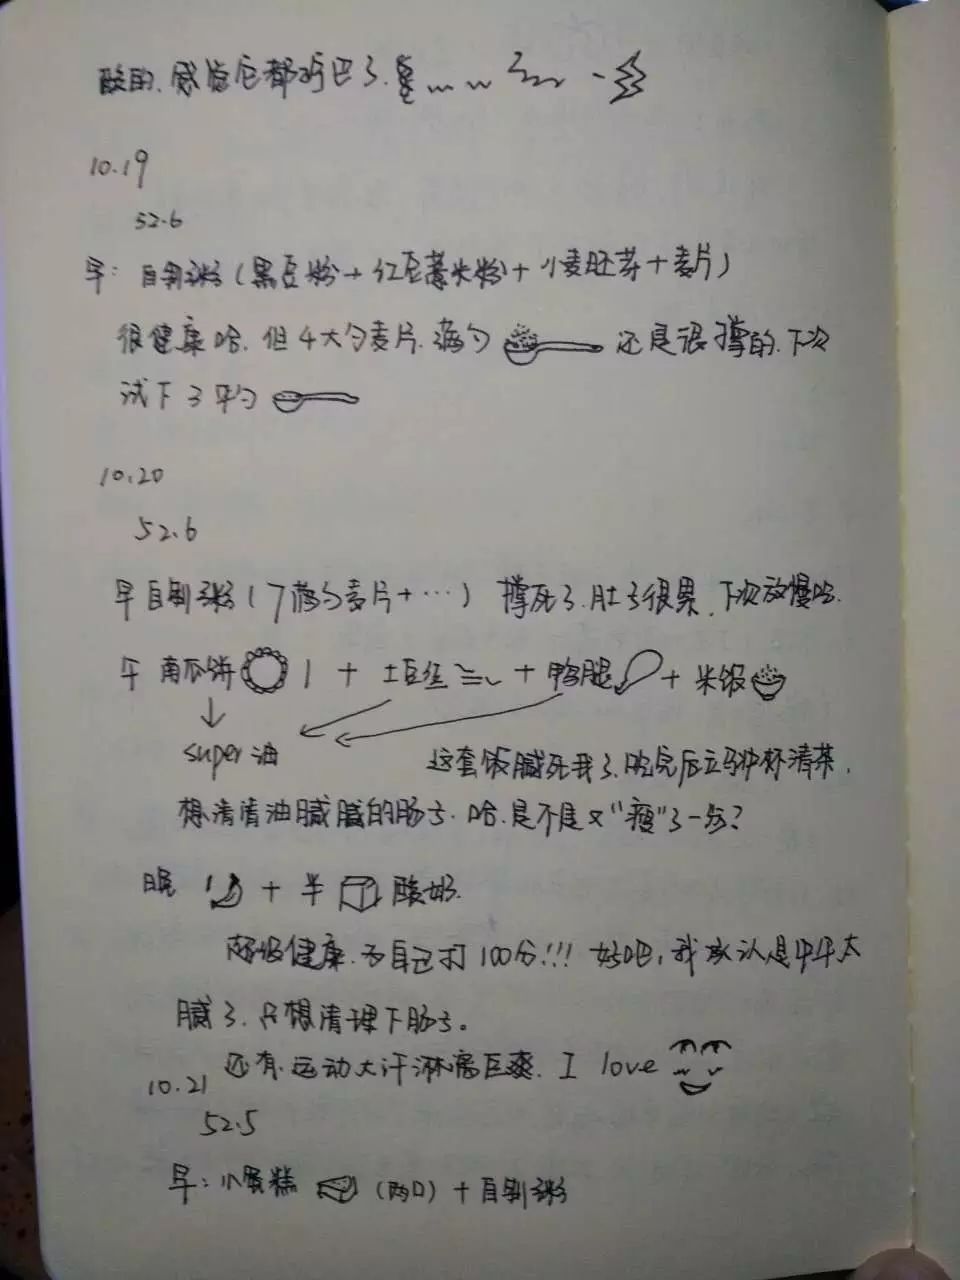 酸的.感觉它都哑巴了.
10.19
52.6
早: 自制粥(黑豆粉+红豆薏米粉+小麦胚芽+麦片)
很健康哈.但4大勺麦片.满勺 还是很撑的.下次
试下3平勺
10.20
52.6
早 自制粥(7满勺麦片+…) 撑死了.肚子很累.下次放慢哈.
午 南瓜饼 1 + 土豆丝 + 鸭腿 + 米饭
super油
这套饭腻死我了.吃完后立马冲杯清茶,
想清清油腻腻的肠子.哈.是不是又"瘦"了一点?
晚 1 + 半 酸奶.
超级健康.为自己打100分!!! 好吧,我承认是中午太
腻了.只想清理下肠子。
还有.运动大汗淋漓巨爽. I love
10.21
52.5
早: 小蛋糕 (两口) + 自制粥